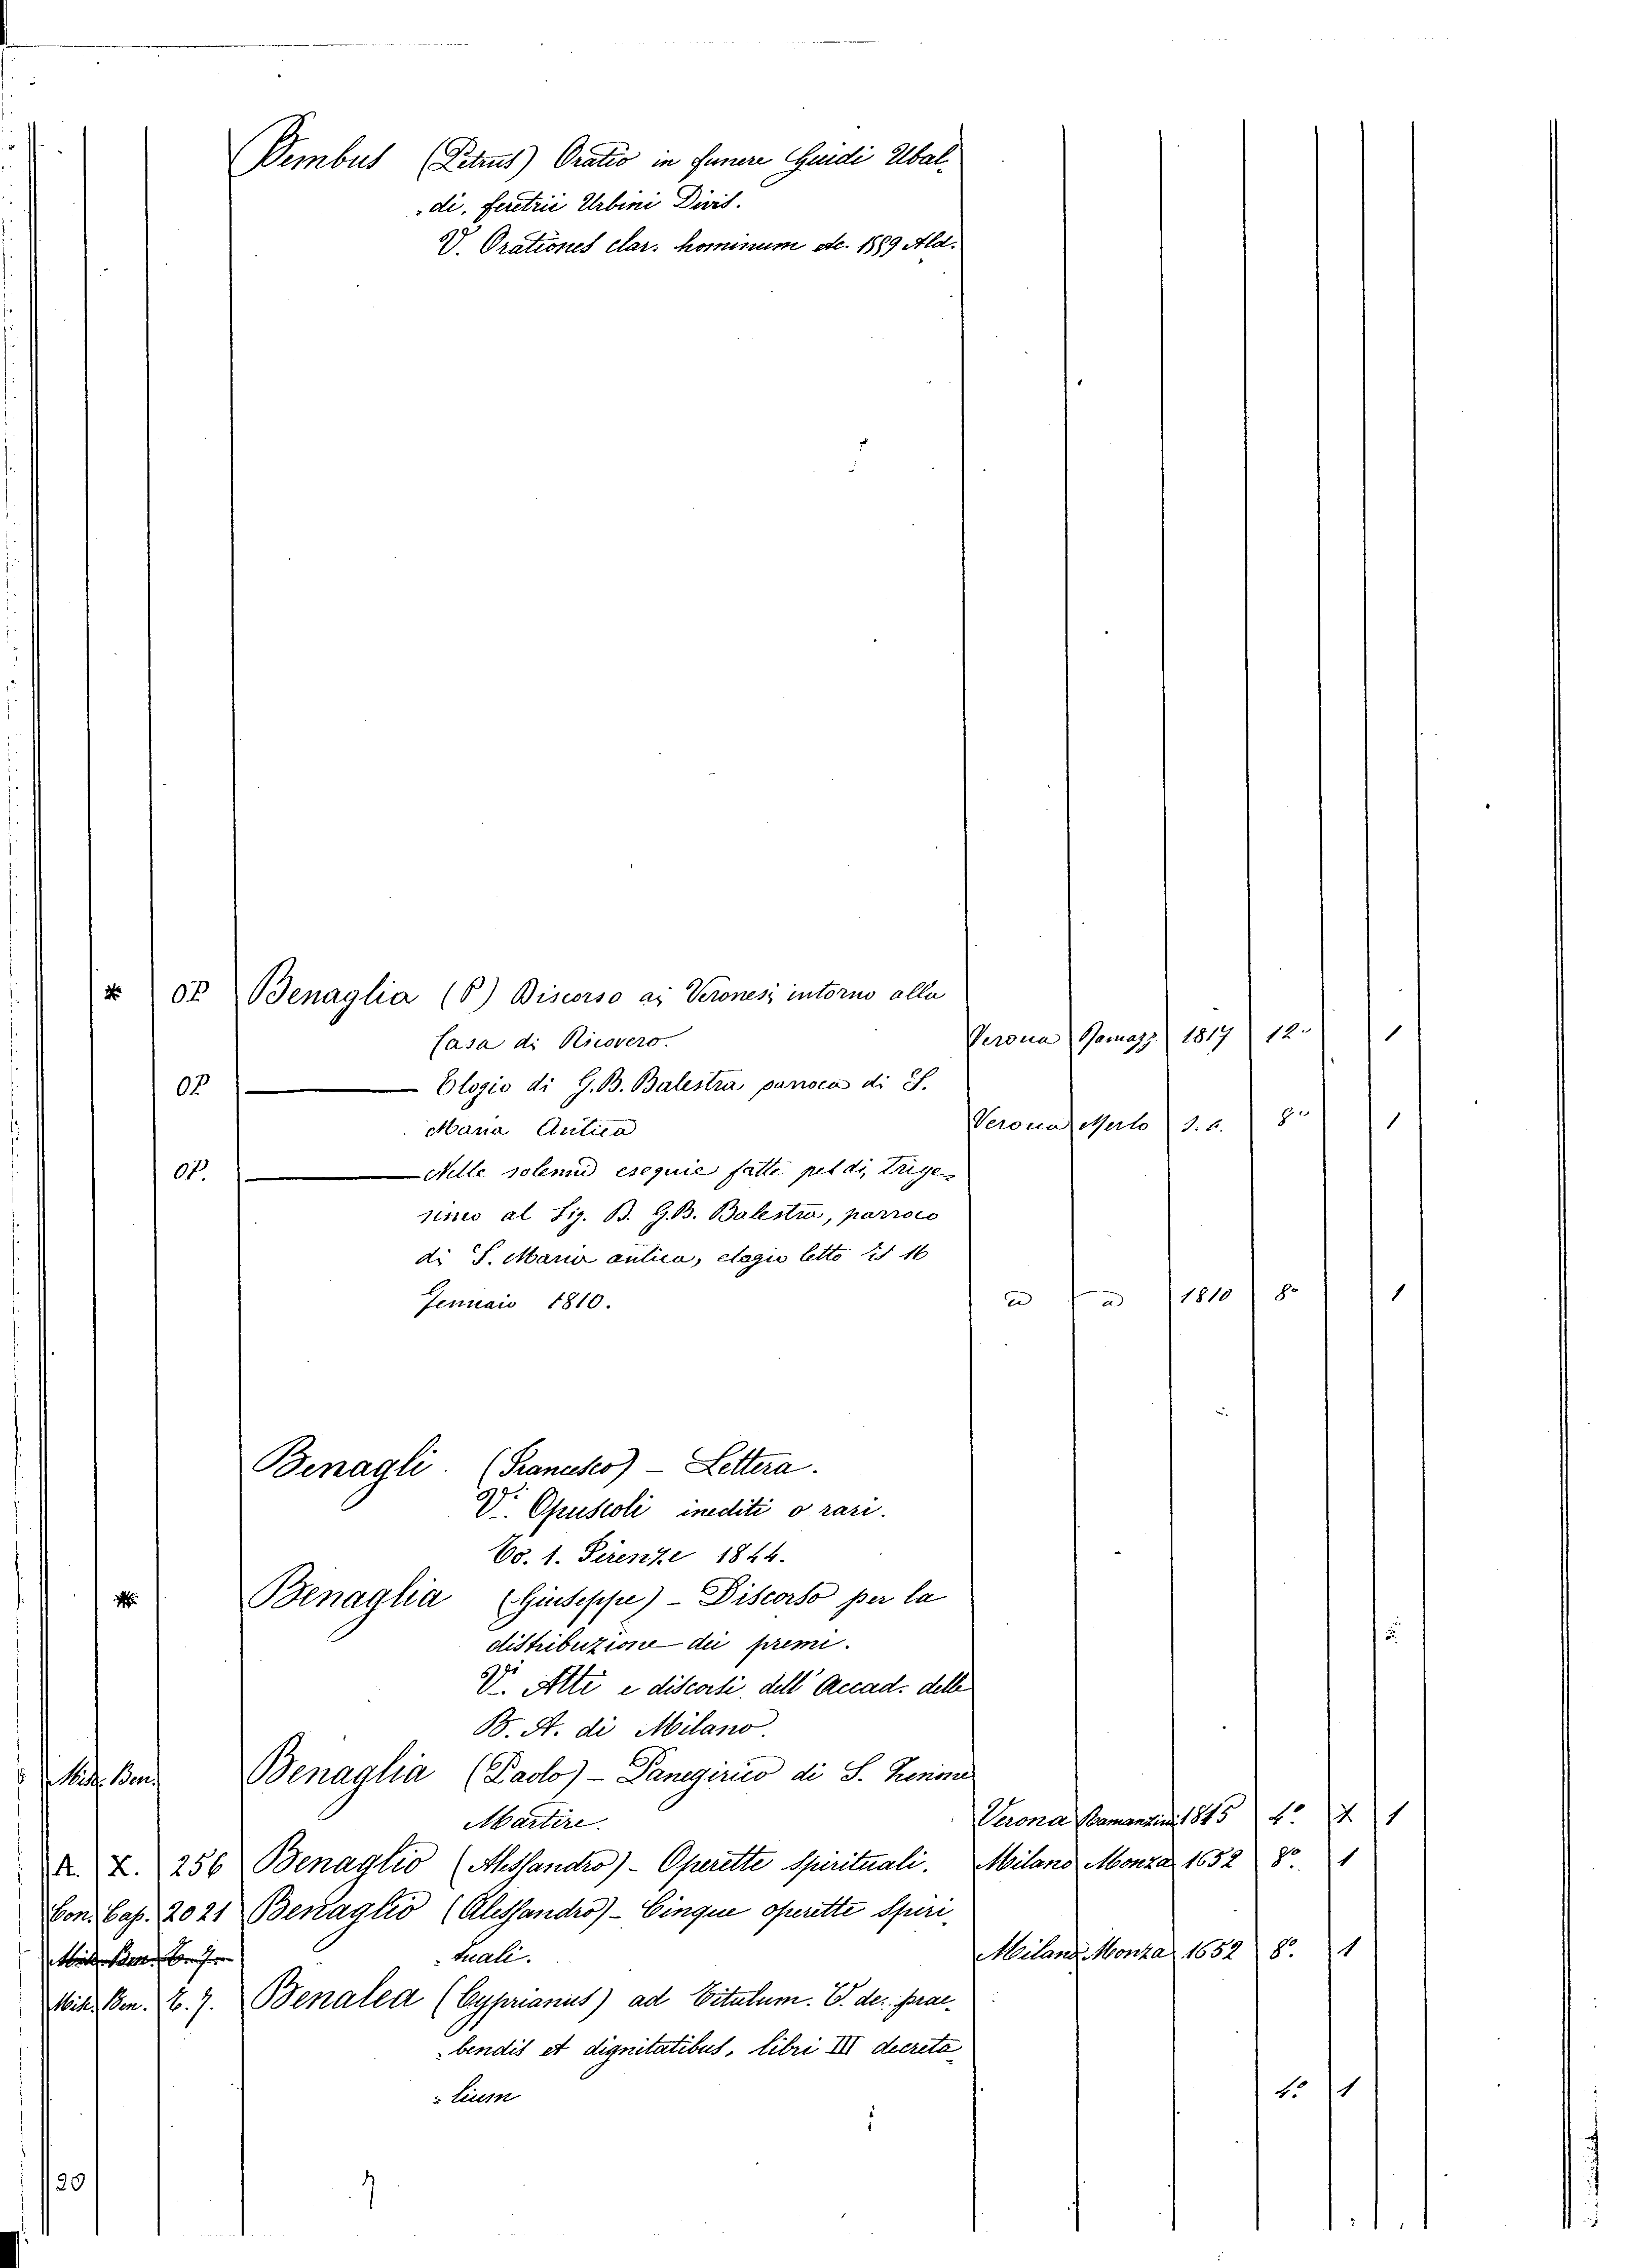 Bembus (Petrus) Oratio in funere Guidi Ubal-
di, feretrii Urbini Ducis.
V. Orationes clar. hominum etc. 1559 Ald.
* OP Benaglia (P) Discorso ai Veronesi intorno alla
Casa di Ricovero. Verona Ramazz. 1817 12. 1
OP — Elogio di G.B. Balestra parroco di S.
Maria Antica Verona Merlo s. a. 8° 1
OP. — Nelle solenni esequie fatte pel dì trige-
simo al Sig. D. G.B. Balestra, parroco
di S. Maria antica, elogio letto li 16
Gennaio 1810. 1810 8° 1
Benagli (Francesco) - Lettera.
V. Opuscoli inediti o rari.
Vo. 1. Firenze 1844.
* Benaglia (Giuseppe) - Discorso per la
distribuzione dei premi.
V. Atti e discorsi dell' Accad. delle
B. A. di Milano.
Misc. Ben. Benaglia (Paolo) - Panegirico di S. Zenone
Martire. Verona Ramanzini 1815 4° 1
A. X. 256 Benaglio (Alessandro) - Operette Spirituali. Milano Monza 1652 8°. 1
Con. Cap. 2021 Benaglio (Alessandro) - Cinque operette Spiri-
tuali. Milano Monza 1652 8°. 1
Misc. Ben. C. 7. Benalea (Cyprianus) ad Titulum. V. de prae-
bendis et dignitatibus, libri III decreta-
lium 4° 1
20